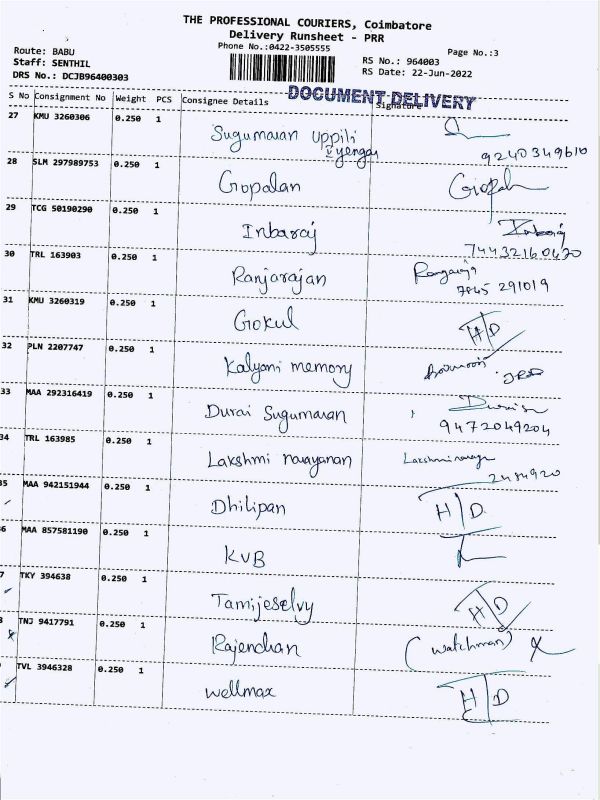 THE PROFESSIONAL COURIERS, Coimbatore
Delivery Runsheet - PRR
Phone No.:0422-3505555
Page No.:3
Route: BABU
Staff: SENTHIL
DRS No.: DCJB96400303
RS No.: 964003
RS Date: 22-Jun-2022
DOCUMENT DELIVERY
S No Consignment No Weight PCS Consignee Details Signature
27 KMU 3260306 0.250 1 Sugumaran uppili Iyengar 9240349610
28 SLM 297989753 0.250 1 Gopalan Gopal
29 TCG 50190290 0.250 1 Inbaraj Inbaraj 74432160430
30 TRL 163903 0.250 1 Ranjarajan 7845 291019
31 KMU 3260319 0.250 1 Gokul H/D
32 PLN 2207747 0.250 1 Kalyani memory
33 MAA 292316419 0.250 1 Durai Sugumaran 9472049204
34 TRL 163985 0.250 1 Lakshmi narayanan 2484920
35 MAA 942151944 0.250 1 Dhilipan H/D
36 MAA 857581190 0.250 1 KVB
7 TKY 394638 0.250 1 Tamijeselvy H/D
8 TNJ 9417791 0.250 1 Rajendran (watchman)
TVL 3946328 0.250 1 wellmax H/D